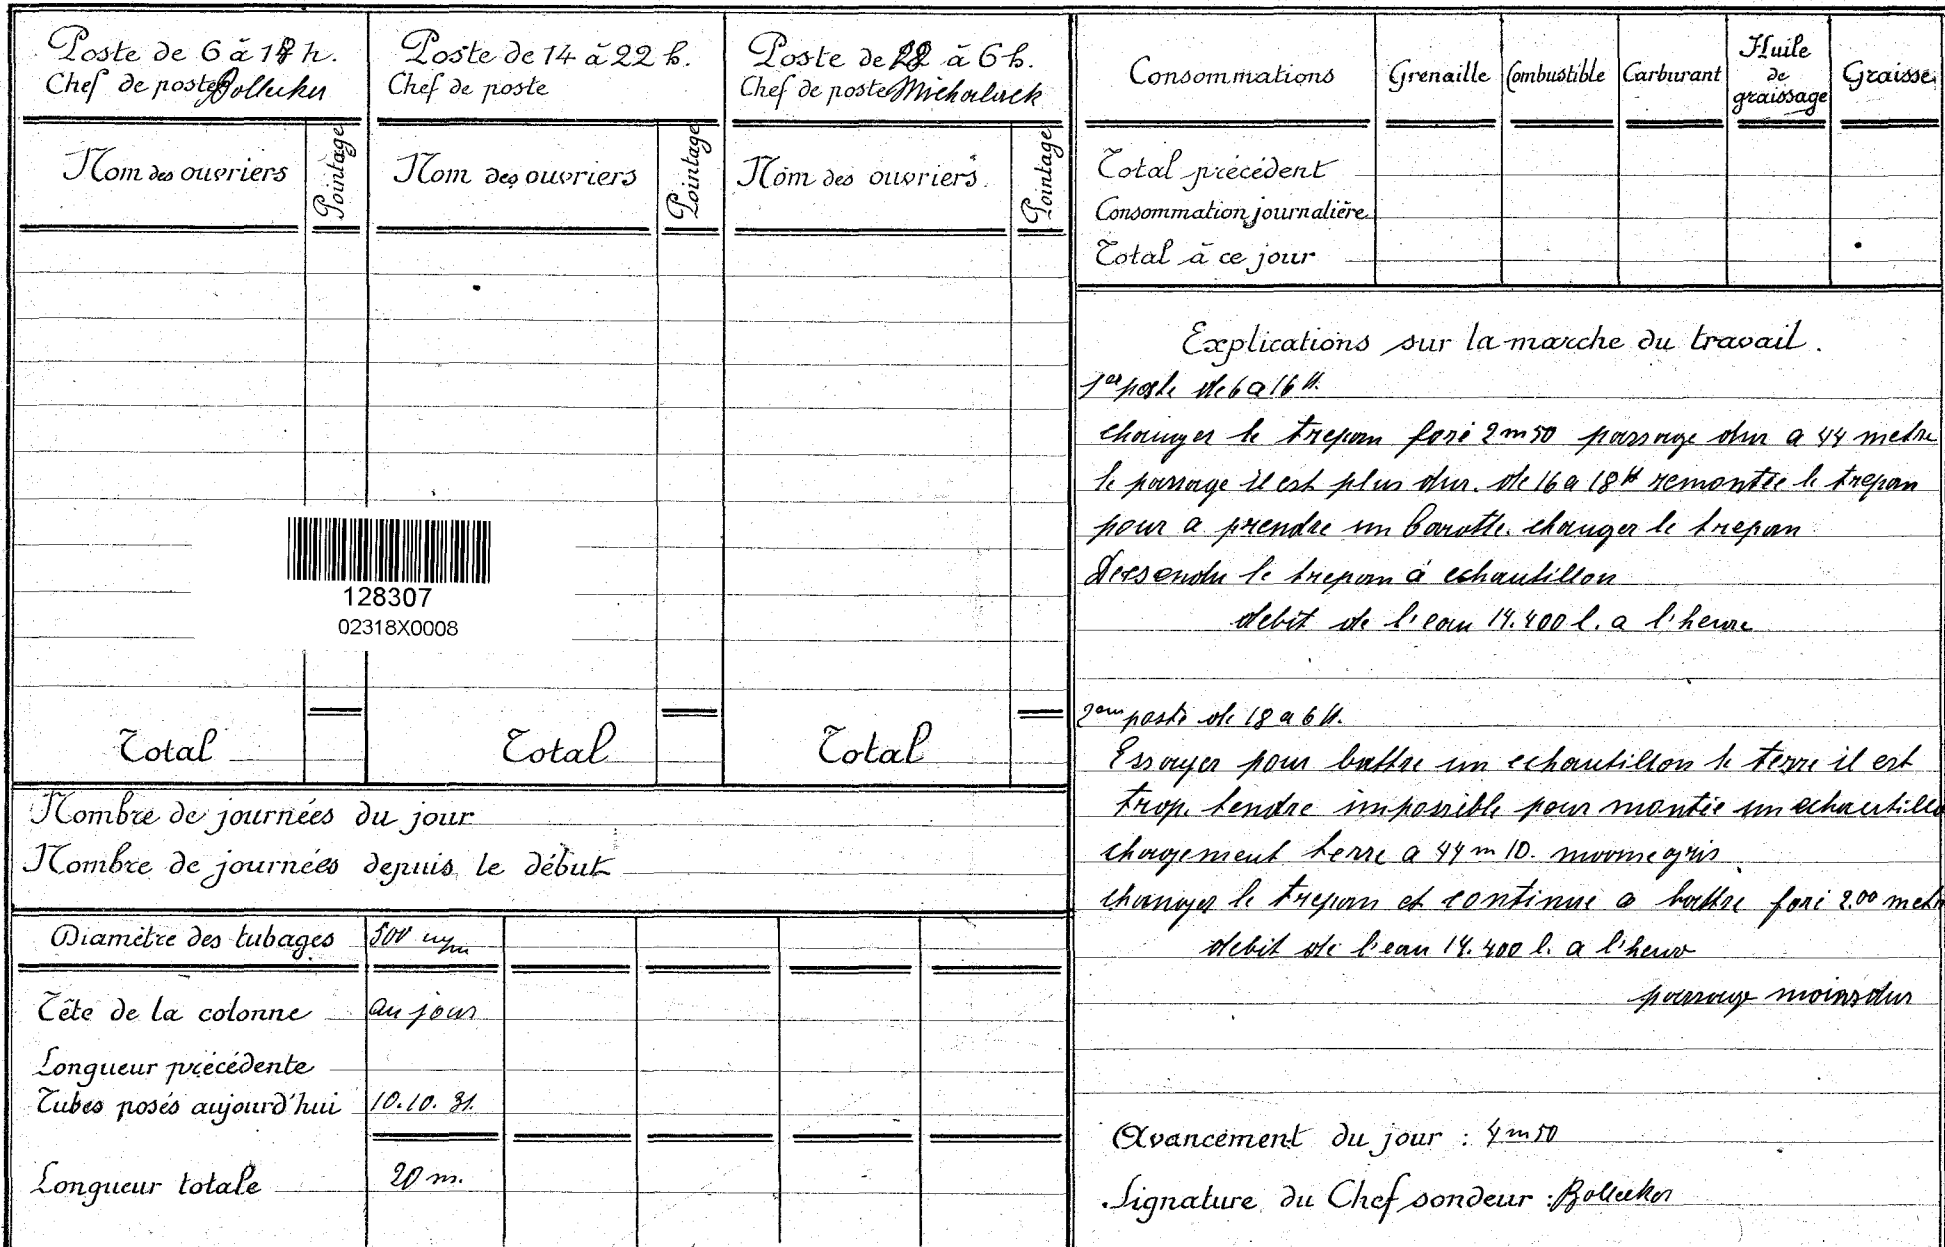 Poste de 6 à 18 h.
Chef de poste Bollecker
Poste de 14 à 22 h.
Chef de poste
Poste de 18 à 6 h.
Chef de poste Michalack
Nom des ouvriers
Pointage
Nom des ouvriers
Pointage
Nom des ouvriers
Pointage
128307
02318X0008
Total
Total
Total
Nombre de journées du jour
Nombre de journées depuis le début
Diamètre des tubages 500 m/m
Tête de la colonne au jour
Longueur précédente
Tubes posés aujourd'hui 10.10.31.
Longueur totale 20 m.
Consommations Grenaille Combustible Carburant Huile de graissage Graisse
Total précédent
Consommation journalière
Total à ce jour
Explications sur la marche du travail.
1er poste de 6 a 16 H.
changer le trepan foré 2m50 passage dur a 44 metre
le passage il est plus dur. de 16 a 18H remontée le trepan
pour a prendre un carotte. changer le trepan
Desendu le trepan à echantillon
debit de l'eau 14.400 l. a l'heure
2em poste de 18 a 6 H.
Essayer pour battre un echantillon le terre il est
trop. tendre impossible pour montée un echantillo
chagement terre a 44 m 10. marne gris
changer le trepan et continue a battre foré 2.00 metr
debit de l'eau 14.400 l. a l'heur
passage moins dur
Avancement du jour : 4m50
Signature du Chef sondeur : Bollecker